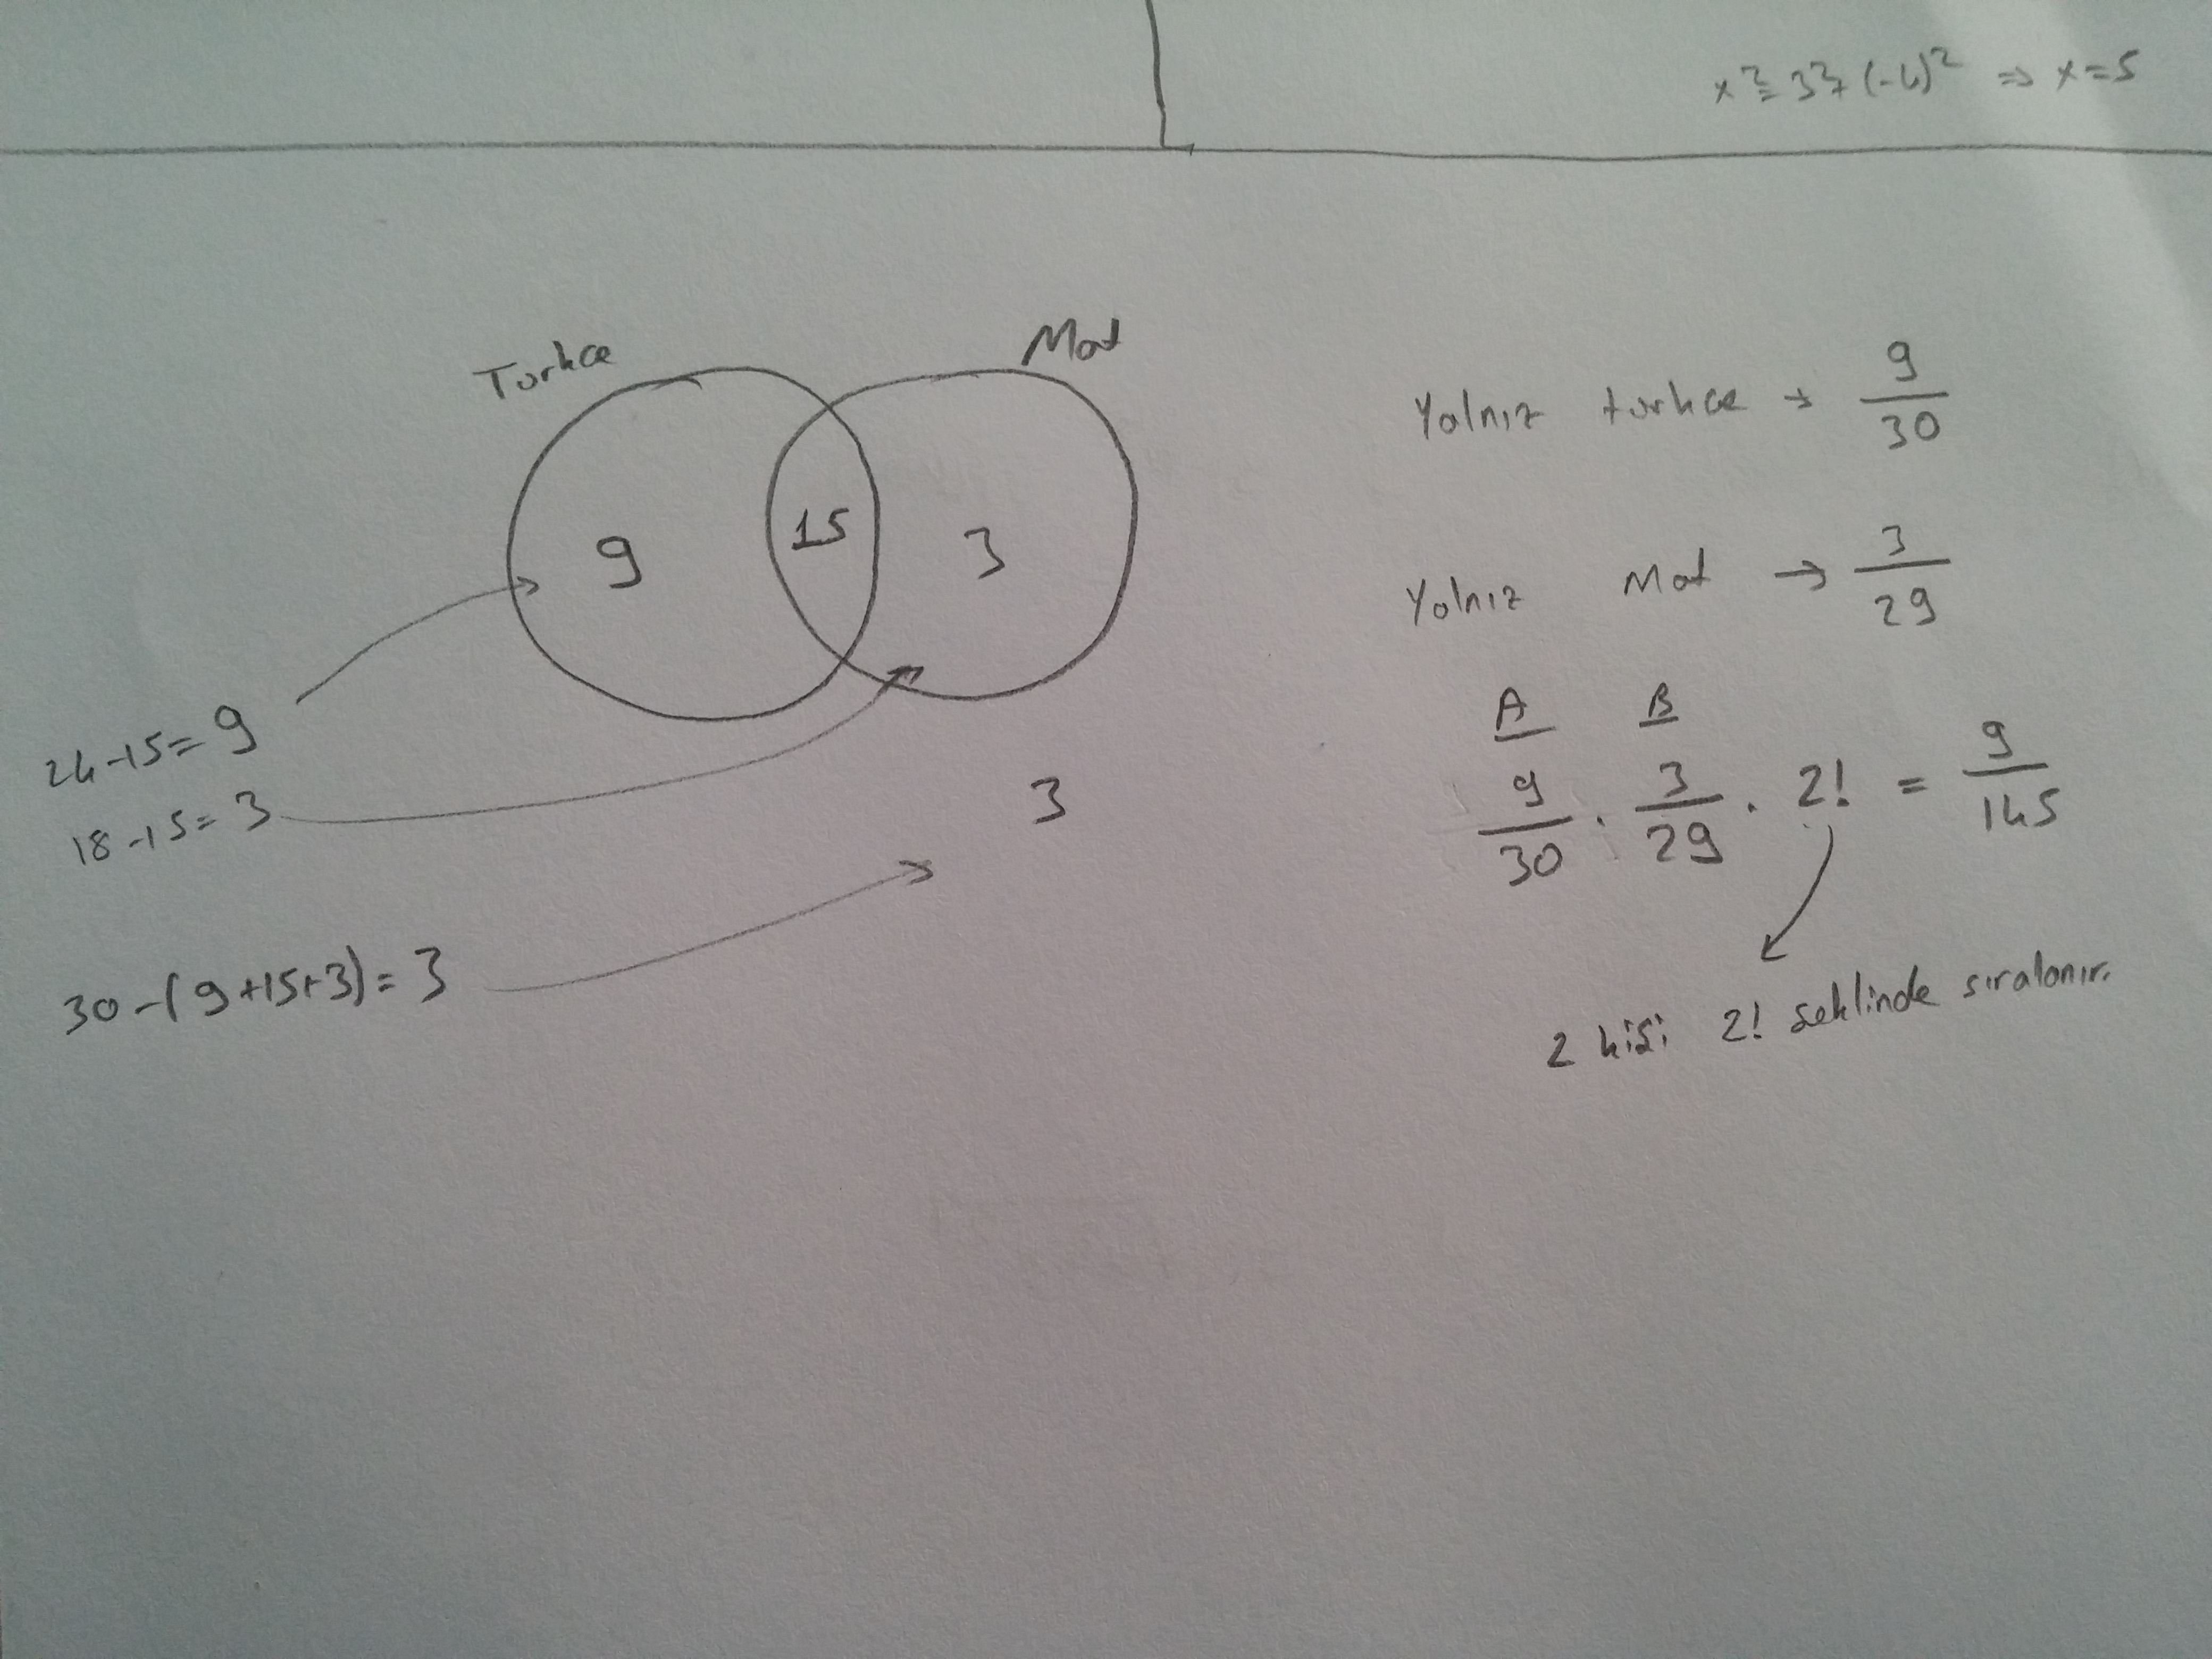 x² = 3² + (-4)² ⇒ x = 5
Turkce
Mat
9
15
3
24-15= 9
18-15= 3
3
30-(9+15+3)= 3
Yalnız turkce → 9/30
Yalnız Mat → 3/29
A B
9/30 . 3/29 . 2! = 9/145
2 kişi 2! şeklinde sıralanır.